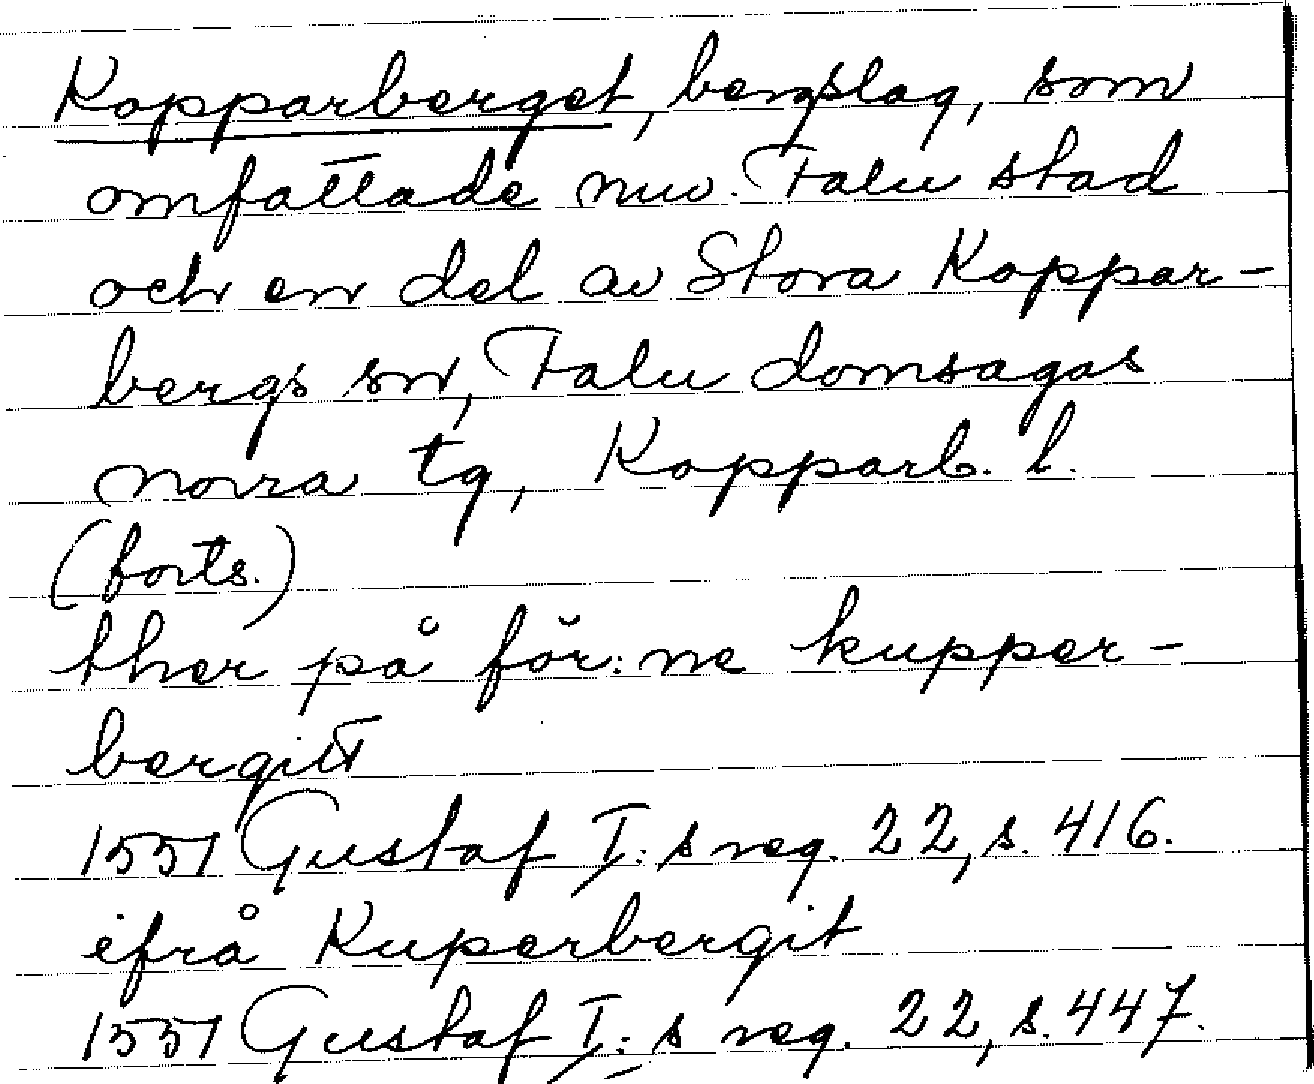 Kopparberget, bergslag, som
omfattade nuv. Falu stad
och en del av Stora Koppar-
bergs sn, Falu domsagas
norra tg, Kopparb. l.
(forts.)
ther på för:ne kupper-
bergitt
1551 Gustaf I:s reg. 22, s. 416.
ifrå Kuperbergit
1551 Gustaf I:s reg. 22, s. 447.